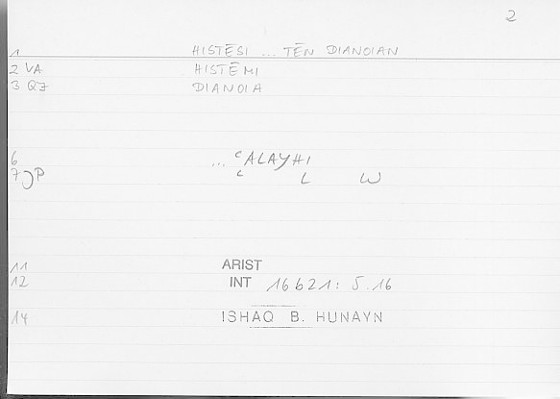 2
1 HISTĒSI ... TĒN DIANOIAN
2 VA HISTĒMI
3 QZ DIANOIA
6 ... ʿALAYHI
7 JP ʿ L W
11 ARIST
12 INT 16b21: 5.16
14 ISHAQ B. HUNAYN